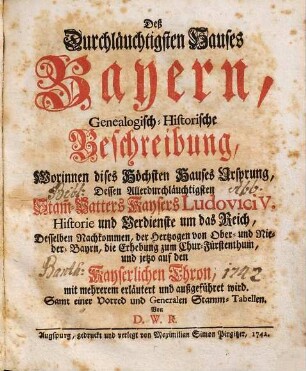 Deß
Durchläuchtigsten Hauses
Bayern,
Genealogisch-Historische
Beschreibung,
Worinnen dises Höchsten Hauses Ursprung,
Dessen Allerdurchläuchtigsten
Stam-Vatters Kaysers Ludovici V.
Historie und Verdienste um das Reich,
Desselben Nachkommen, der Hertzogen von Ober- und Nie-
der-Bayrn, die Erhebung zum Chur-Fürstenthum,
und jetzo auf den
Kayserlichen Thron, 1742
mit mehrerem erläutert und außgeführet wird.
Samt einer Vorred und Generalen Stamm-Tabellen.
Von
D. W. R.
Augspurg, gedruckt und verlegt von Maximilian Simon Pingitzer, 1742.